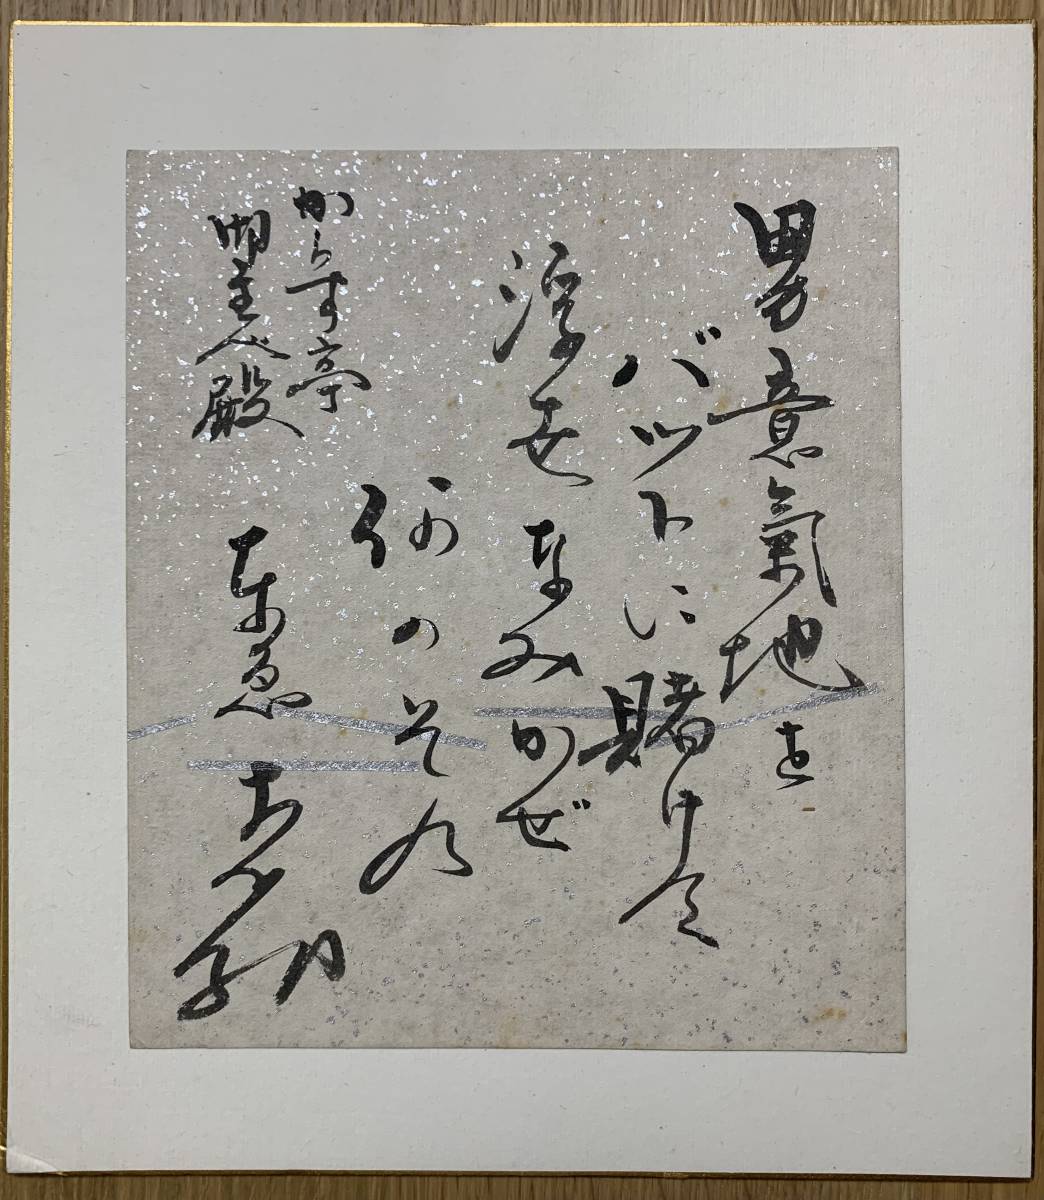 男意氣地を
バットに賭けて
浮世なみかぜ
何のその
からす亭
御主人殿
東急